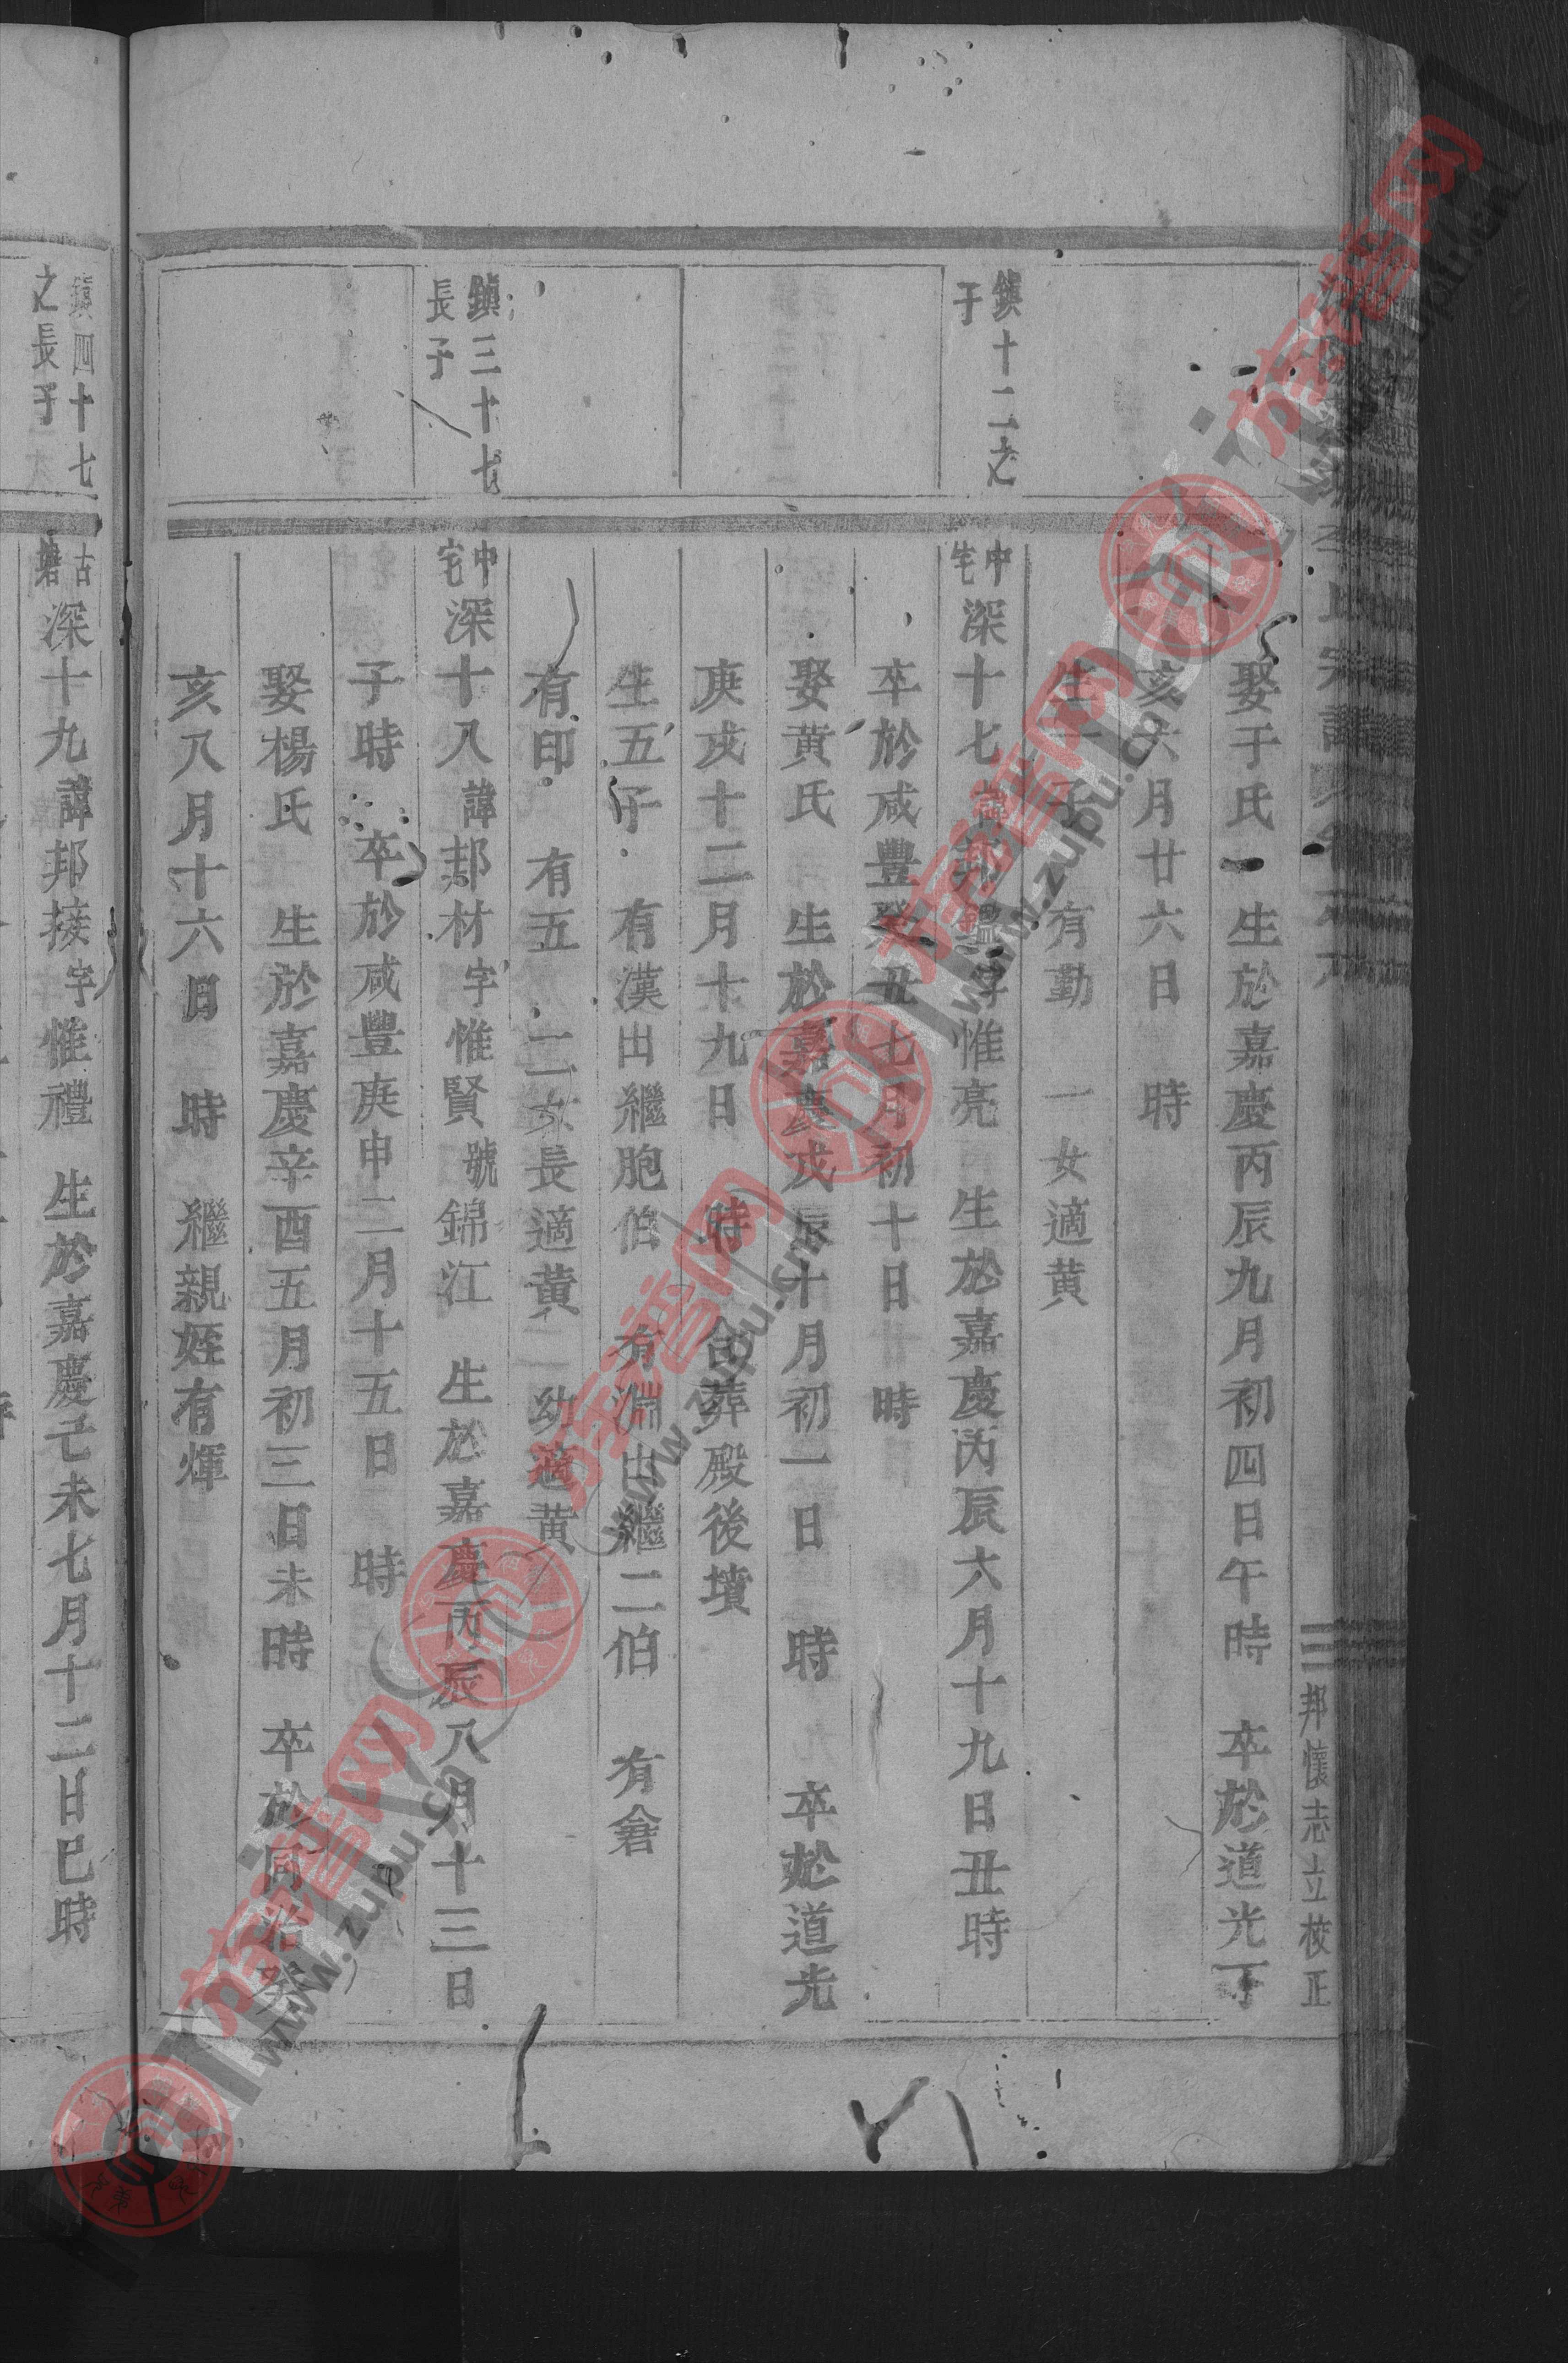 邦懷志立校正
娶于氏 生於嘉慶丙辰九月初四日午時 卒於道光丁
亥六月廿六日 時
生一子 有勤 一女適黄
鎮十二之
子
中宅 深十七 諱邦鑑 字惟亮 生於嘉慶丙辰六月十九日丑時
卒於咸豐癸丑七月初十日 時
娶黄氏 生於嘉慶戊辰十月初一日 時 卒於道光
庚戌十二月十九日 時 合葬殿後墳
生五子 有漢出繼胞伯 有淵出繼二伯 有倉
有印 有五 二女長適黄 幼適黄
鎮三十七
長子
中宅 深十八 諱邦材 字惟賢 號錦江 生於嘉慶丙辰八月十三日
子時 卒於咸豐庚申二月十五日 時
娶楊氏 生於嘉慶辛酉五月初三日未時 卒於同治癸
亥八月十六日 時 繼親姪有煇
鎮四十七
之長子
古塘 深十九 諱邦接 字惟禮 生於嘉慶己未七月十二日巳時
族譜网 www.zupu.cn